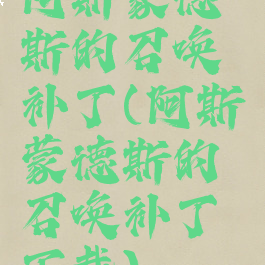 阿斯蒙德
斯的召唤
补丁(阿斯
蒙德斯的
召唤补丁
下载)